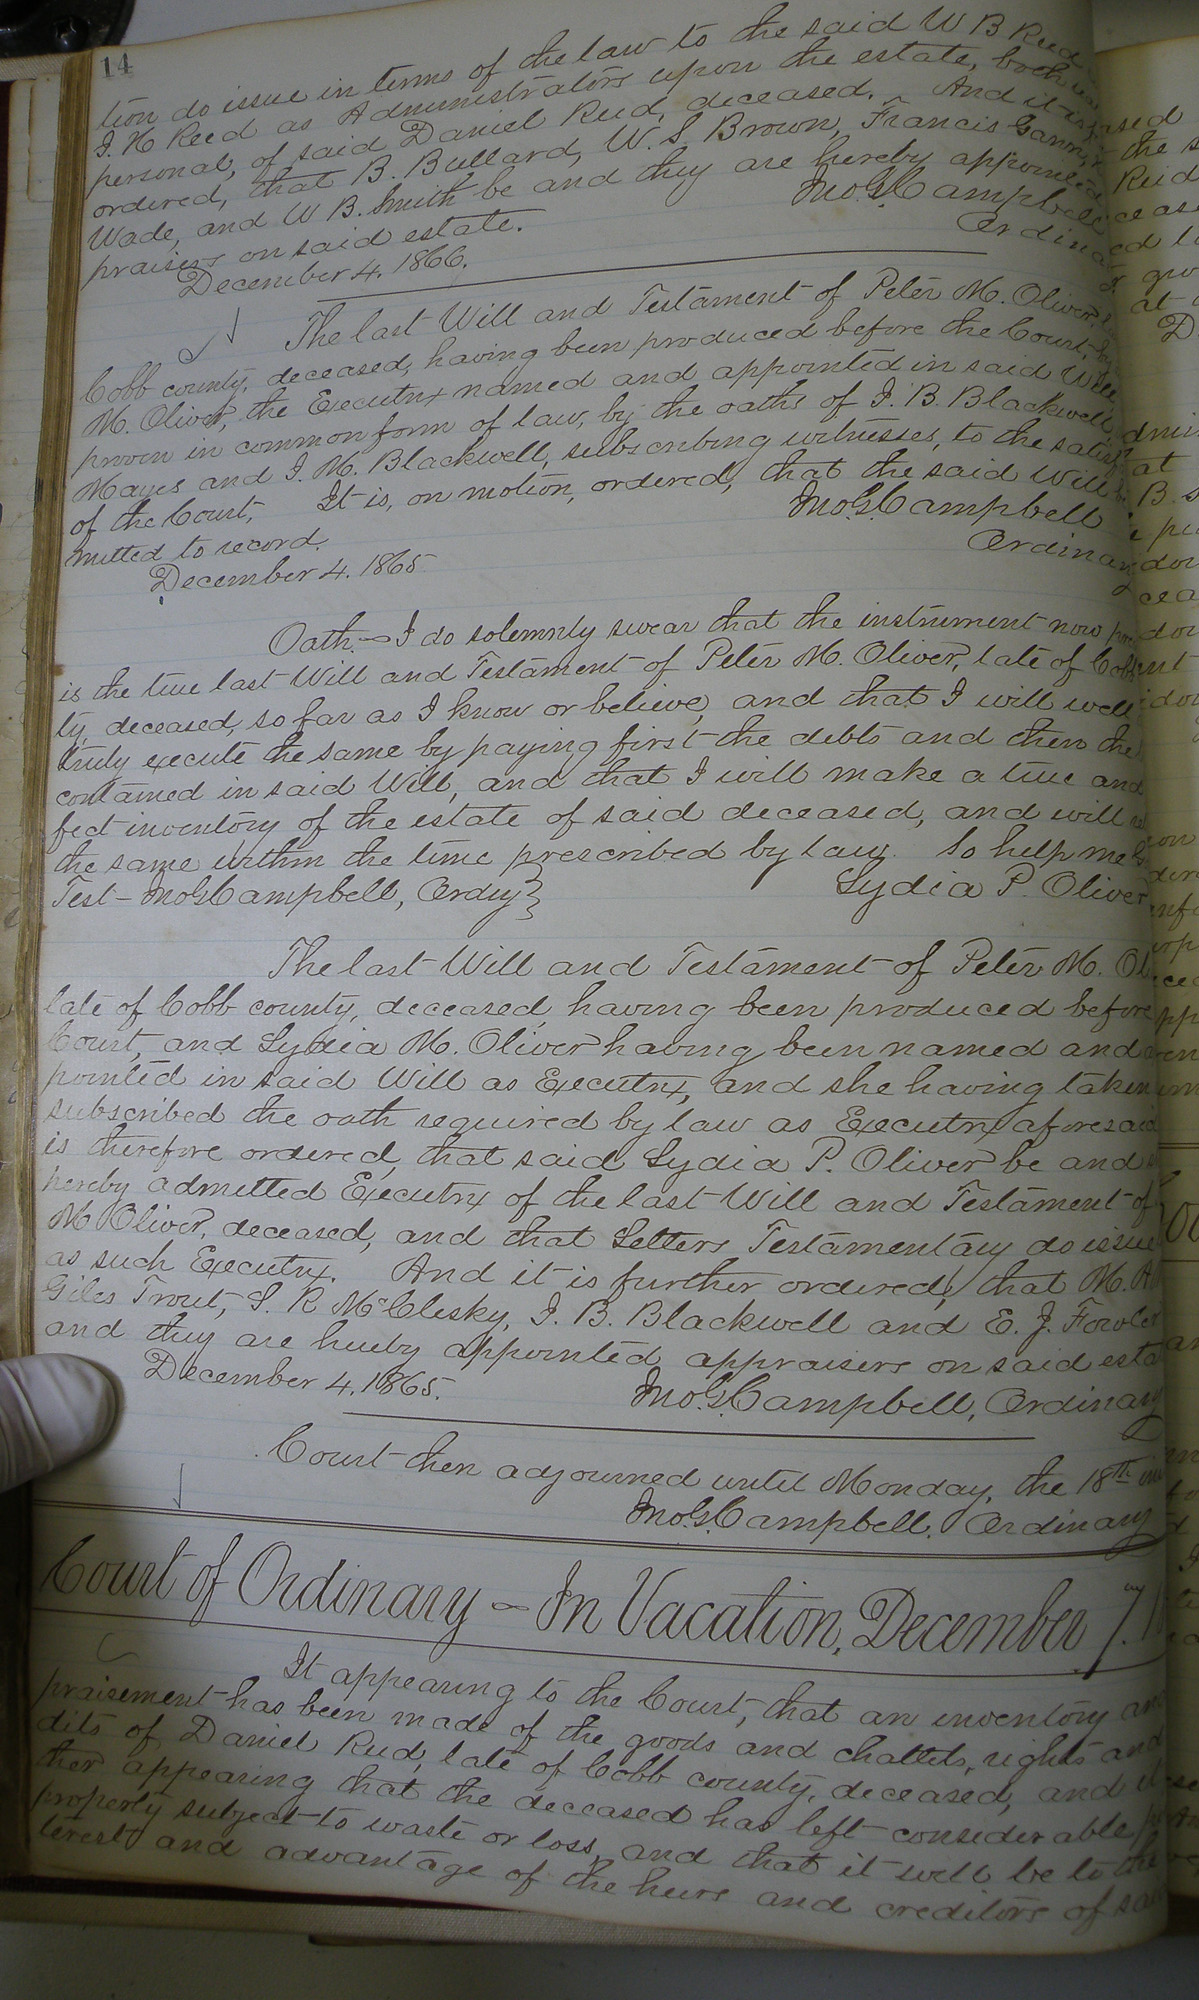 14
tion do issue in terms of the law to the said W B Reid
J. H Reed as Administrators upon the estate, both
personal, of said Daniel Reid, deceased. And it is
ordered, that B. Bullard, W. S Brown, Francis
Wade, and W B. Smith be and they are hereby appointed
praisers on said estate. Jno. G. Campbell
December 4. 1866. Ordinary
The last Will and Testament of Peter M. Oliver,
Cobb county, deceased, having been produced before the Court,
M. Oliver, the Executrx named and appointed in said Will,
proven in common form of law, by the oaths of J. B. Blackwell,
Mayes and J. M. Blackwell, subscribing witnesses, to the satisf
of the Court, It is, on motion, ordered, that the said Will
mitted to record. Jno. G. Campbell
December 4. 1865 Ordinary
Oath – I do solemnly swear that the instrument now
is the true last Will and Testament of Peter M. Oliver, late of Cobb
ty, deceased, so far as I know or believe, and that I will well
truly execute the same by paying first the debts and then the
contained in said Will, and that I will make a true and
fect inventory of the estate of said deceased, and will
the same within the time prescribed by law. So help me
Test – Jno G Campbell, Ordy} Lydia P. Oliver
The last Will and Testament of Peter M. Ol
late of Cobb county, deceased, having been produced before
Court, and Lydia M. Oliver having been named and
pointed in said Will as Executrx, and she having taken
subscribed the oath required by law as Executrx aforesaid
is therefore ordered, that said Lydia P. Oliver be and
hereby admitted Executrx of the last Will and Testament of
M Oliver, deceased, and that Letters Testamentary do issue
as such Executrx. And it is further ordered, that M.
Giles Trout, S. R McClesky, J. B. Blackwell and E. J. Fowler
and they are hereby appointed appraisers on said esta
December 4. 1865. Jno. G. Campbell, Ordinary
Court then adjourned until Monday, the 18th
Jno. G. Campbell, Ordinary
Court of Ordinary – In Vacation, December 7.
It appearing to the Court, that an inventory and
praisement has been made of the goods and chattels, rights and
dits of Daniel Reid, late of Cobb county, deceased, and
ther appearing that the deceased has left considerable
property subject to waste or loss, and that it will be to the
terest and advantage of the heirs and creditors of sa